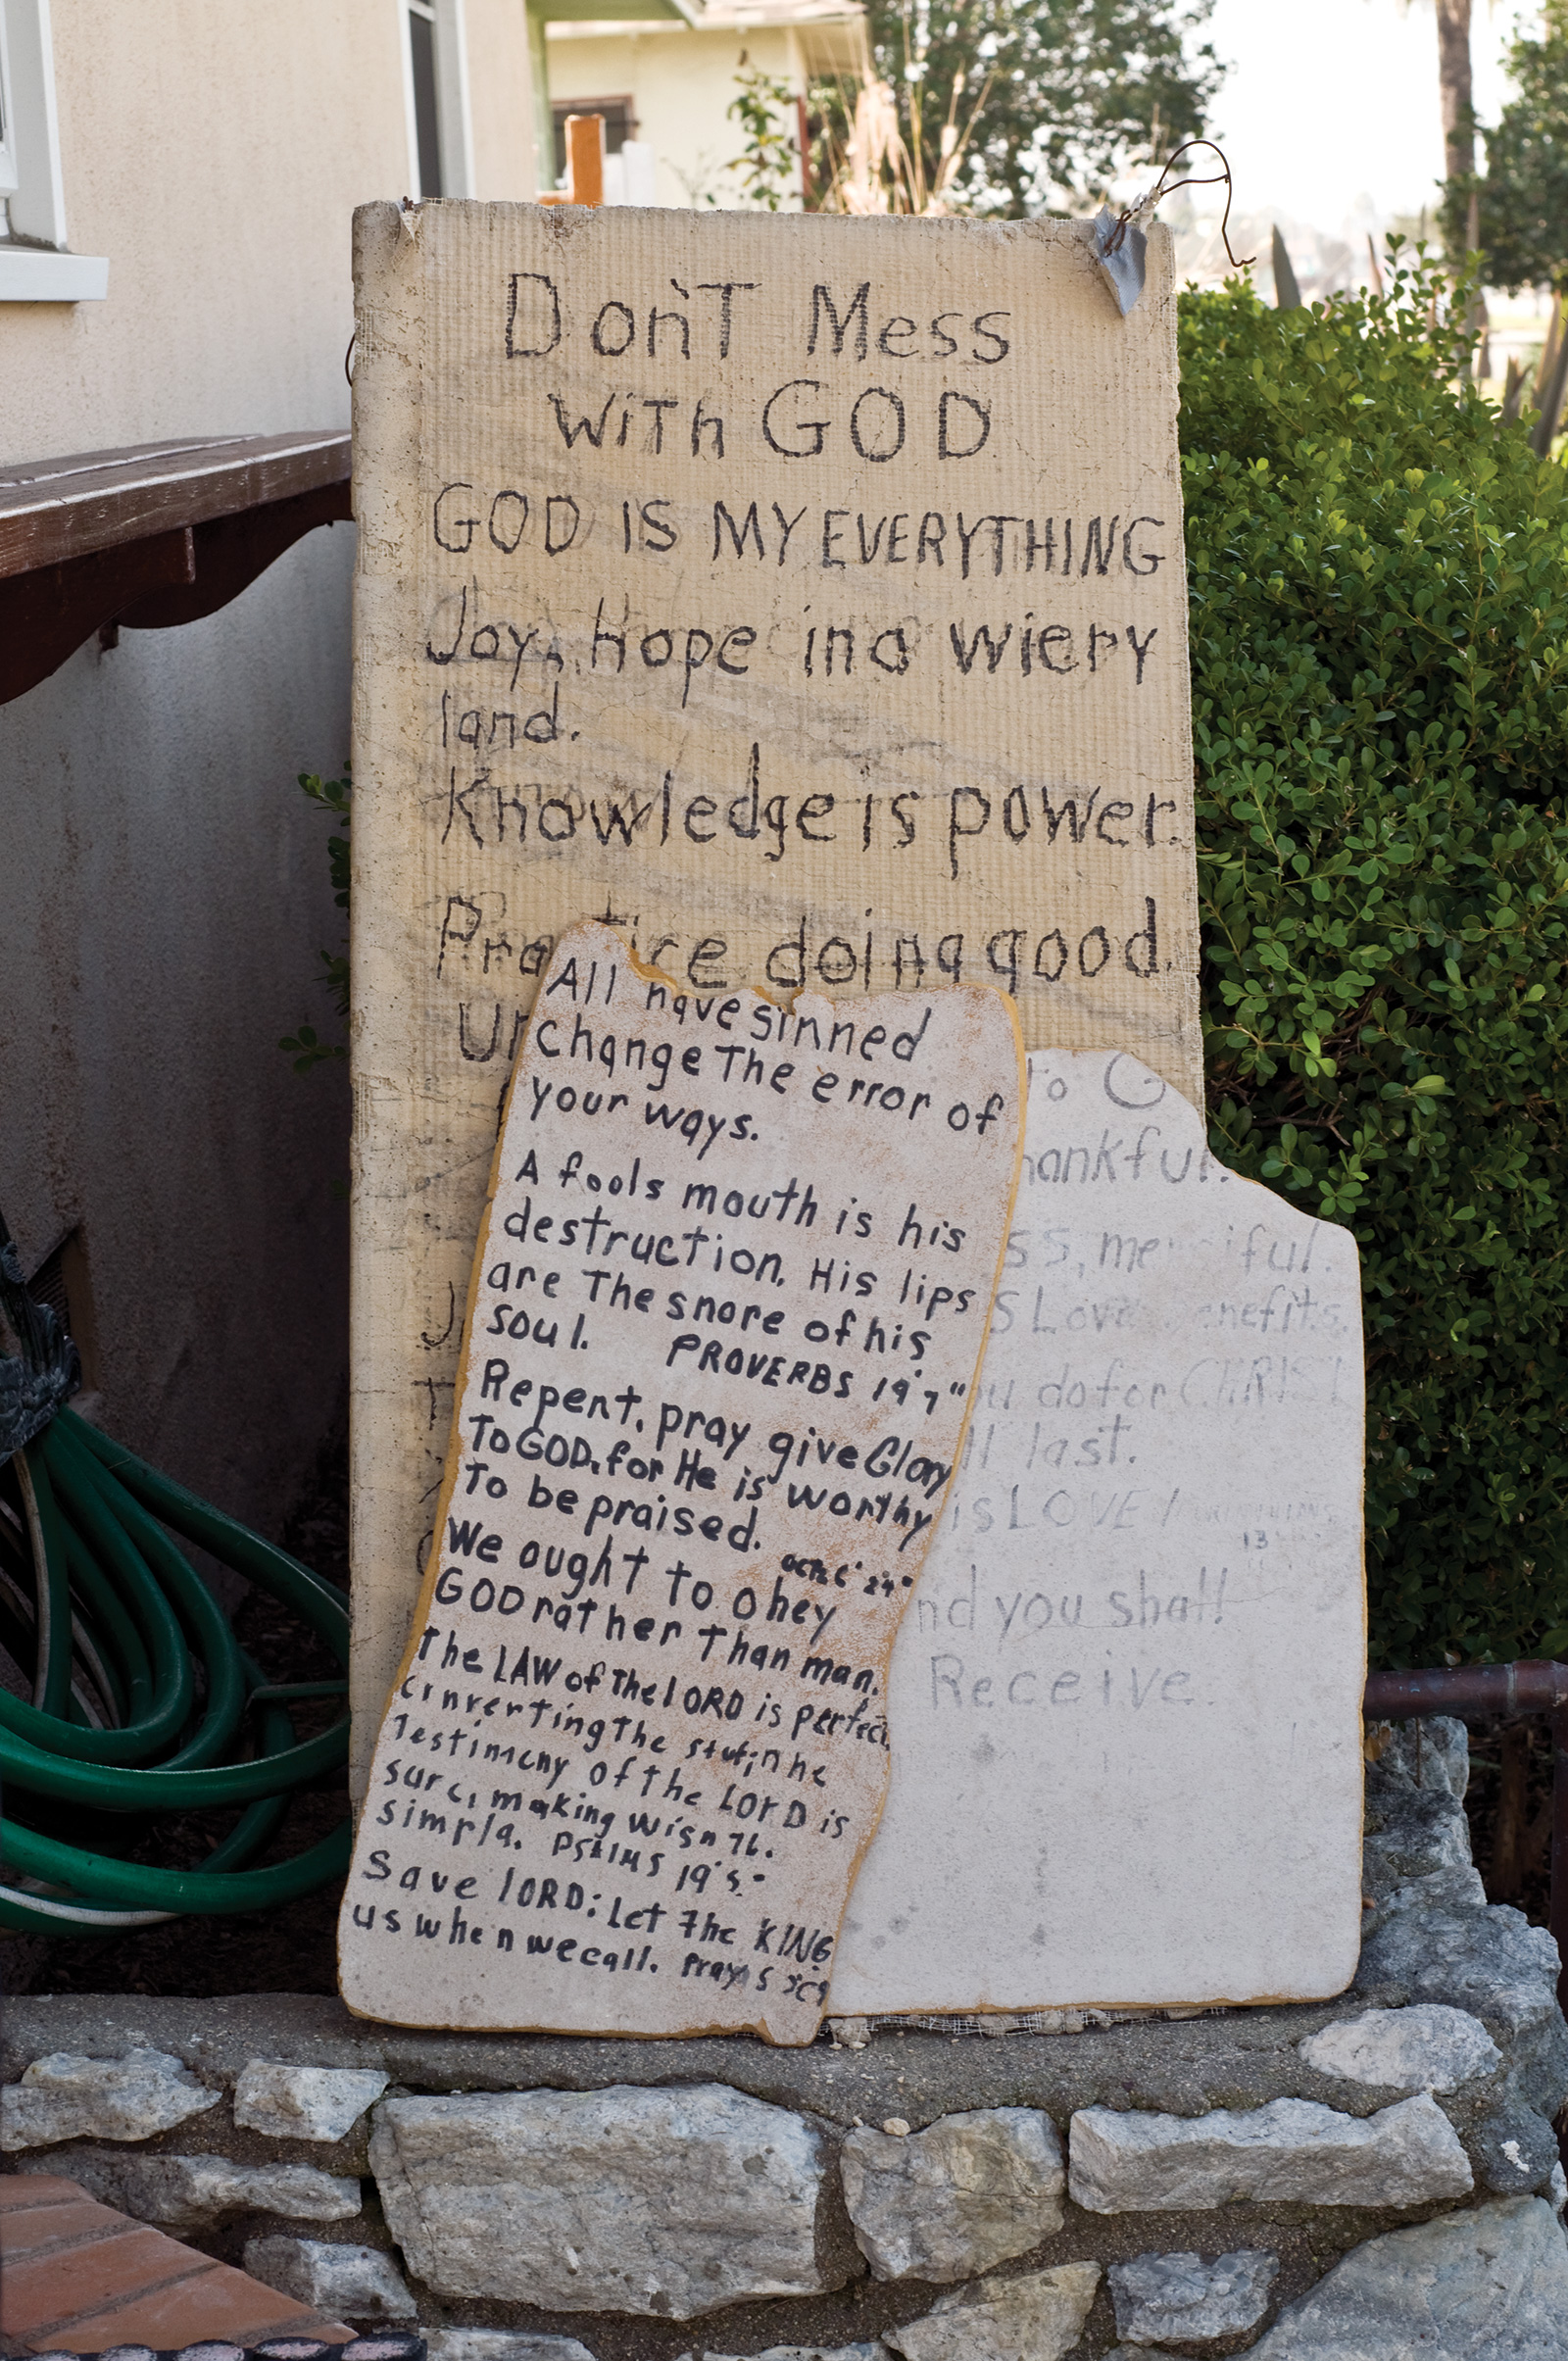 Don't Mess
with GOD
GOD IS MY EVERYTHING
Joy, Hope in a wiery
land.
Knowledge is power.
Practice doing good.
All have sinned
Change The error of
your ways.
A fools mouth is his
destruction. His lips
are The snare of his
soul. PROVERBS 19'7"
Repent, pray give Glory
To GOD, for He is worthy
To be praised.
We ought to obey
GOD rather Than man.
The LAW of The LORD is perfect,
The
Testimony of the LorD is
sure, making
simple. PSALMS 19
Save LORD: Let The KING
us when we call.
to G
hankful.
ss, merciful.
S Love enefits.
u do for CHRIST
ll last.
is LOVE
13
nd you shall
Receive.